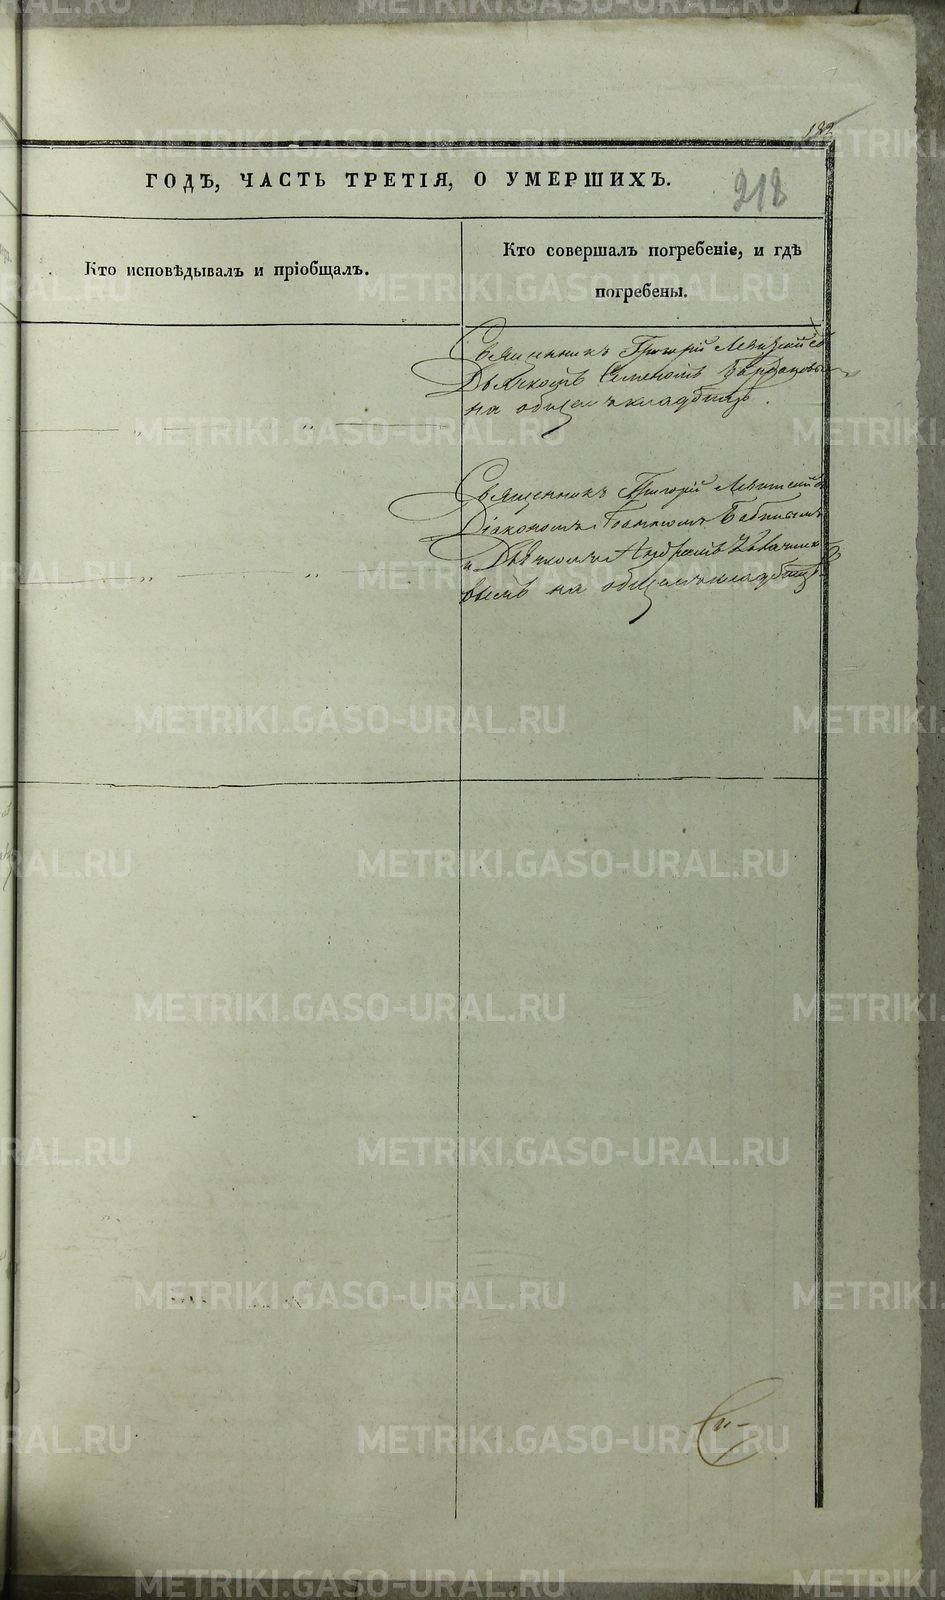 182
ГОДЪ, ЧАСТЬ ТРЕТІЯ, О УМЕРШИХЪ.
218
Кто исповѣдывалъ и пріобщалъ.
Кто совершалъ погребеніе, и гдѣ
погребены.
Священникъ Григорій Левитскій съ
Дьячкомъ Семеномъ
на общемъ кладбищѣ.
„ „
Священникъ Григорій Левитскій съ
Діакономъ Іоанномъ Бабиновымъ
и Дьячкомъ Андреемъ
вымъ на общемъ кладбищѣ
„ „
METRIKI.GASO-URAL.RU